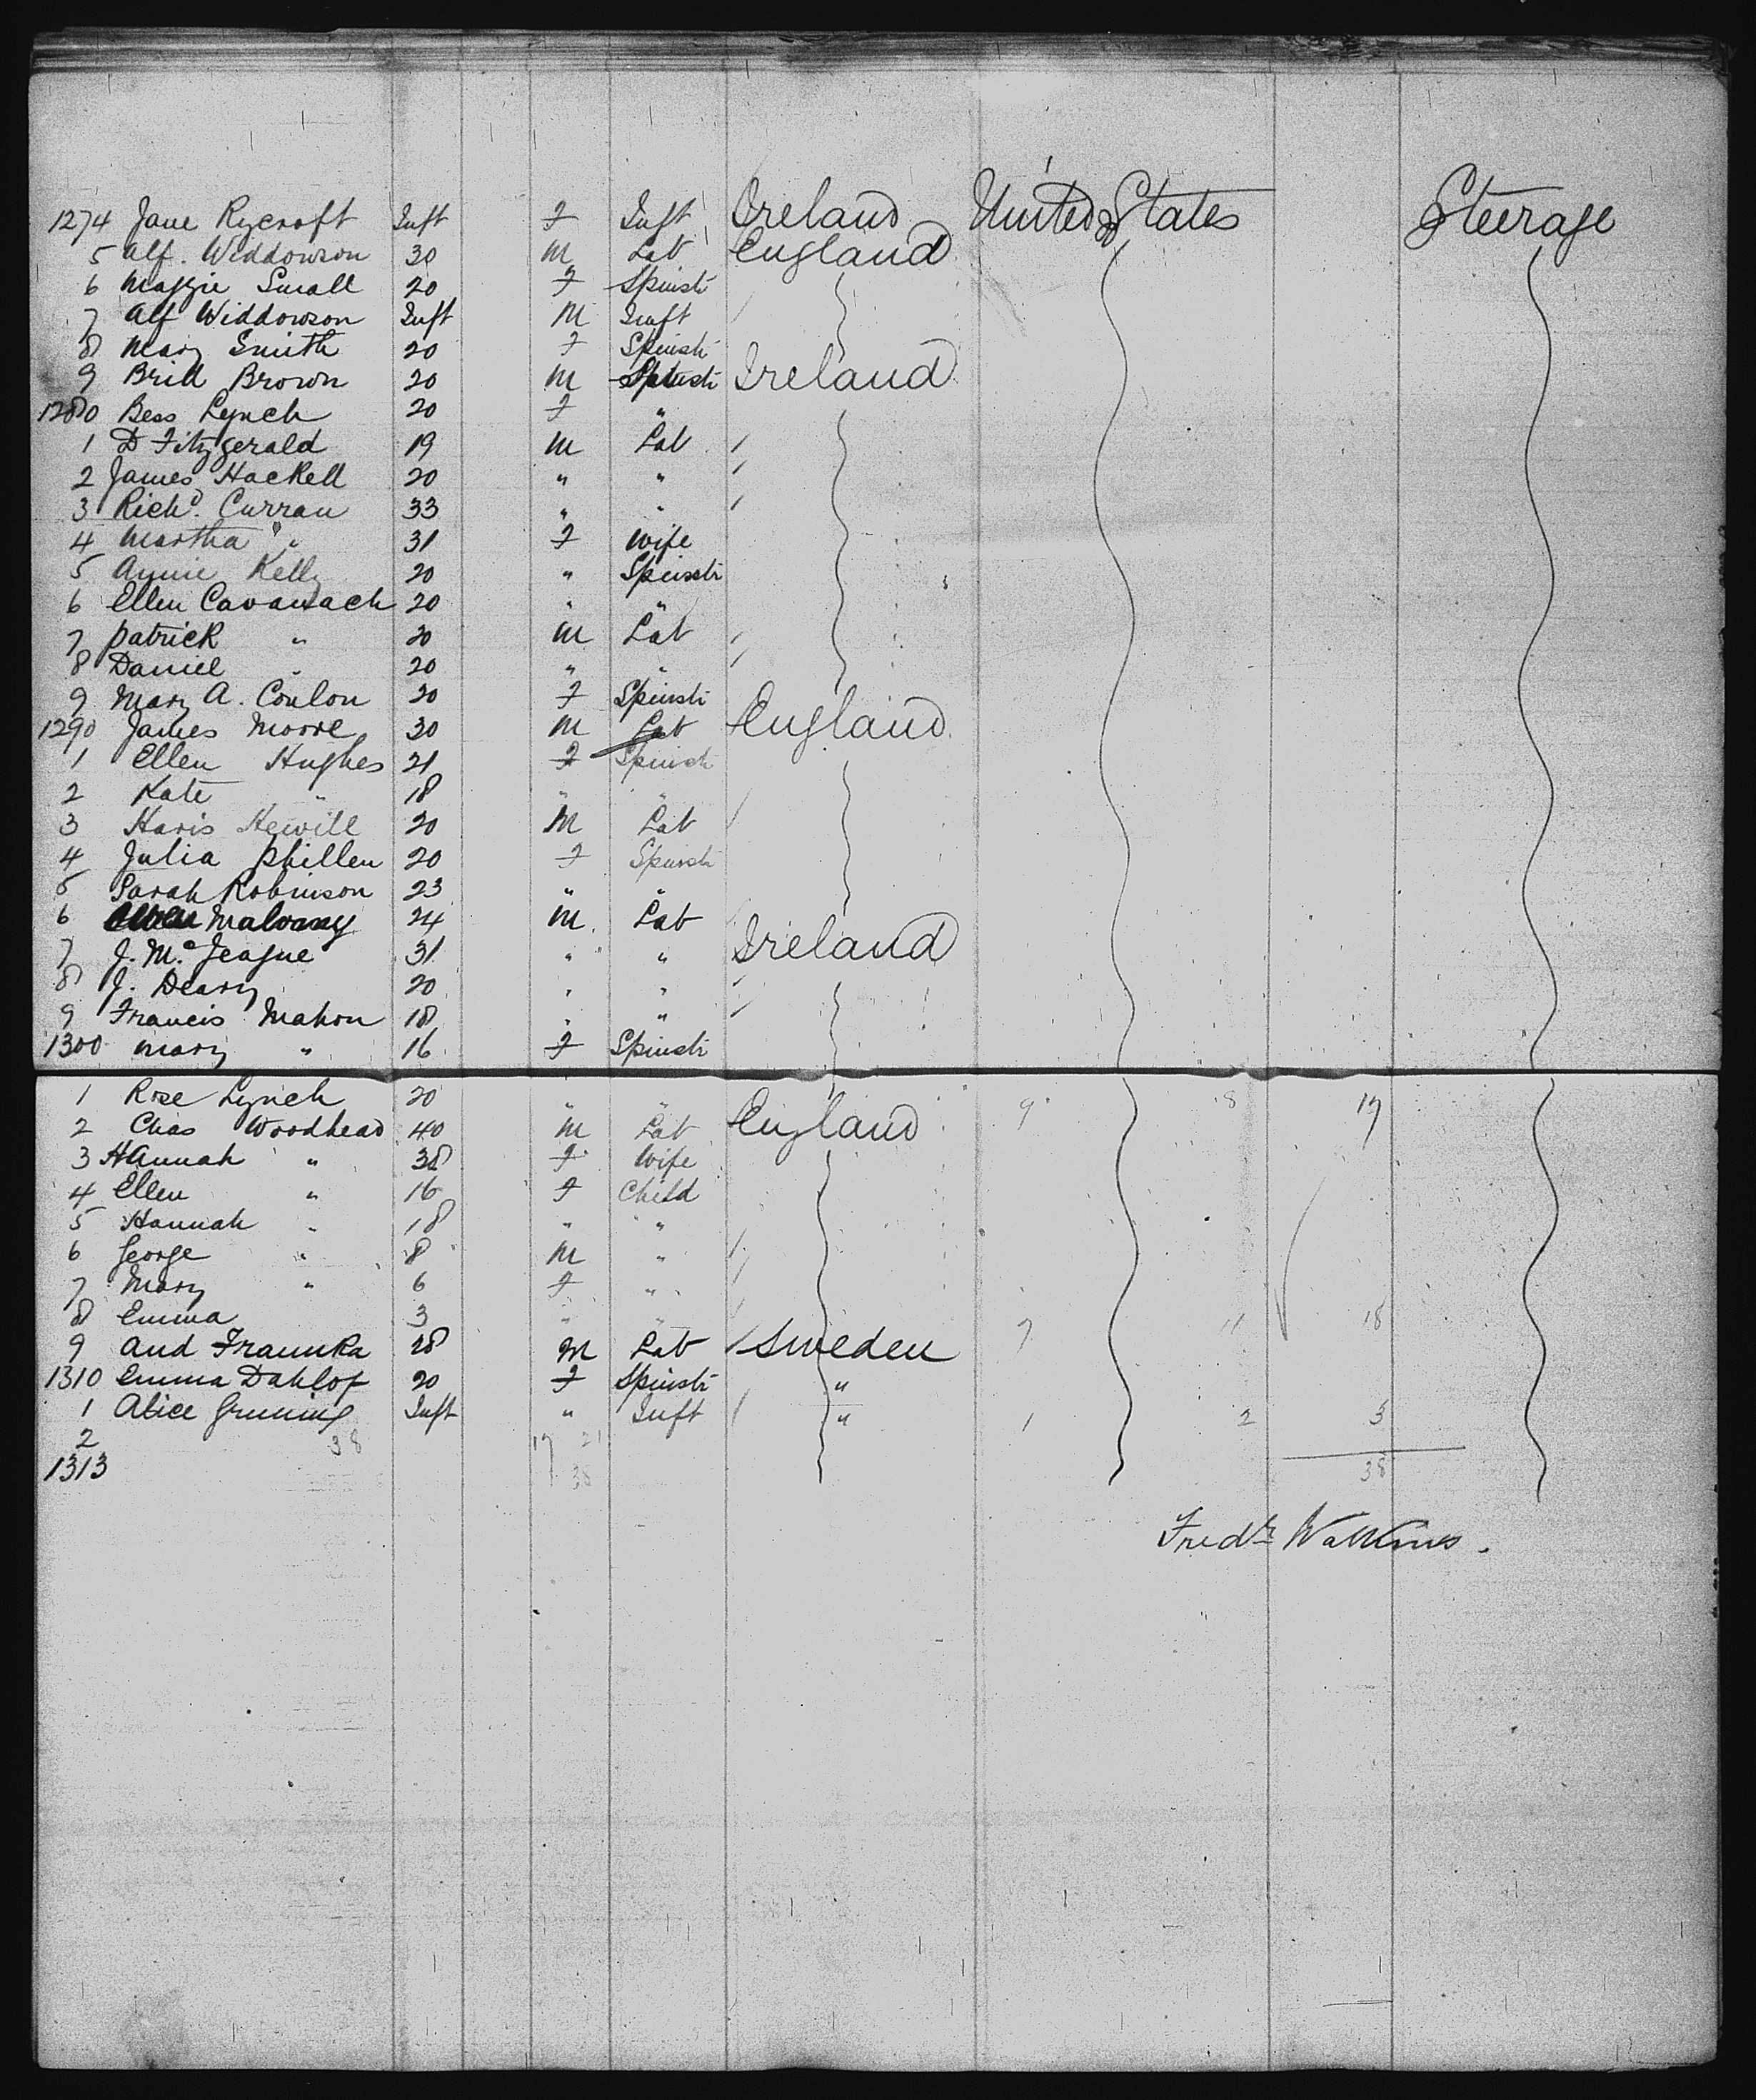 1274 Jane Rycroft Inft F Inft Ireland United States Steerage
5 Alf. Widdowson 30 M Lab England
6 Maggie Small 20 F Spinstr
7 Alf Widdowson Inft M Inft
8 Mary Smith 20 F Spinstr
9 Brid Brown 20 M Spinstr Ireland
1280 Bess Lynch 20 F "
1 D Fitzgerald 19 M Lab
2 James Hackett 20 " "
3 Richd. Curran 33 " "
4 Martha " 31 F Wife
5 Annie Kelly 20 " Spinstr
6 Ellen Cavanach 20 " "
7 Patrick " 20 M Lab
8 Daniel " 20 " "
9 Mary A. Conlon 20 F Spinstr
1290 James Moore 30 M Lab England
1 Ellen Hughes 21 F Spinstr
2 Kate " 18 " "
3 Haris Hewill 20 M Lab
4 Julia Phillen 20 F Spinstr
5 Sarah Robinson 23 " "
6 Malvany 24 M. Lab
7 J. Mc Teague 31 " " Ireland
8 J. Deary 20 " "
9 Francis Mahon 18 " "
1300 Mary " 16 F Spinstr
1 Rose Lynch 20 " " England 9 8 17
2 Chas Woodhead 40 M Lab
3 Hannah " 38 F Wife
4 Ellen " 16 F Child
5 Hannah " 18 " "
6 George " 8 M "
7 Mary " 6 F "
8 Emma 3 " "
9 And Frannka 28 M Lab Sweden 7 11 18
1310 Emma Dahlof 20 F Spinstr "
1 Alice Gruning Inft " Inft " 1 2 3
2 38 17 21
1313 38 38
Fredk Watkins.